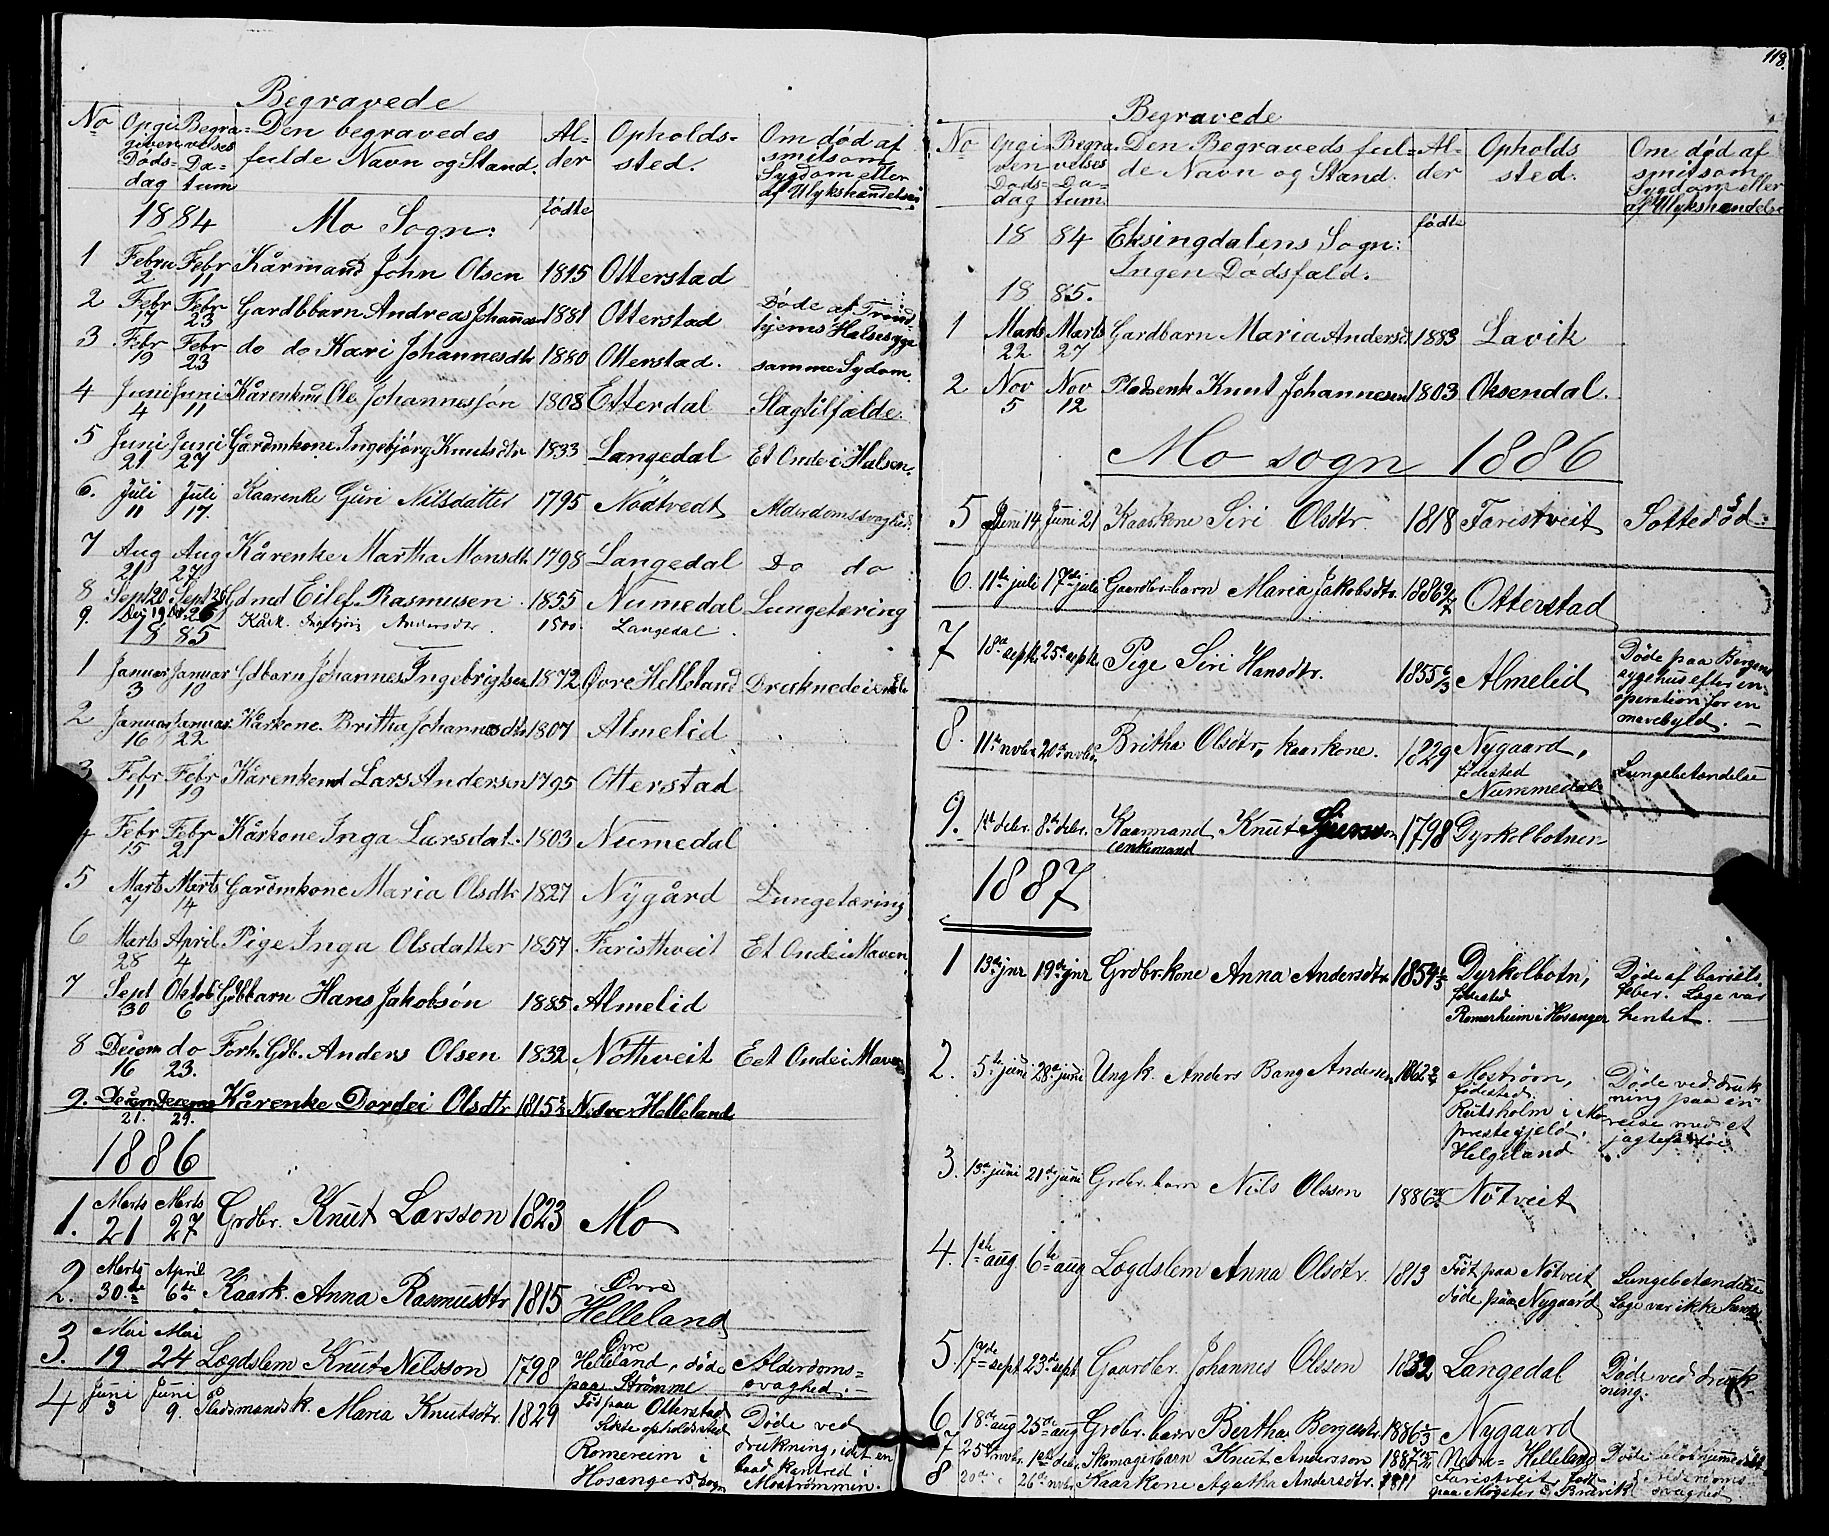 Begravede
No Opgiven Døds-dag Begravelses Da-tum Den begravedes fulde Navn og Stand. Al-der Opholds-sted. Om død af smitsom Sygdom eller af Ulykshændelse
1884 Mo Sogn: fødte
1 Febru 2 Febr 11 Kårmand John Olsen 1815 Otterstad
2 Febr 17 Febr 23 Gardbbarn Andreas Johannes 1881 Otterstad Døde af Trond hjems Halsesyge
3 Febr 19 Febr 23 do do Kari Johannesdtr 1880 Otterstad. samme Sydom.
4 Juni 4 Juni 11 Kårenkm Ole Johannesøn 1808 Etterdal Slagtilfælde.
5 Juni 21 Juni 27 Gårdmkone Ingebjørg Knutsdtr 1833 Langedal Et Onde i Halsen.
6. Juli 11 Juli 17. Kaarenke Guri Nilsdatter 1795 Nødtvedt Alderdomssvaghed.
7 Aug 21 Aug 27 Kårenke Martha Monsdtr 1798 Langedal Do do
8 Sept 20 Sept 26 Gd ned Eilef Rasmusen 1855 Numedal Lungetæring
9. Kårk. Ingebjørg Andersdtr 1800. Langedal.
1885
1 Januar 3 Januar 10 Gdbarn Johannes Ingebrigtsen 1872 Øvre Helleland Drukned i en Elv
2 Januar 16 Januar 22 Kårkone Britha Johannesdtr 1807 Almelid
3 Febr 11 Febr 19 Kårenkemd Lars Andersen 1795 Otterstad
4 Febr 15 Febr 21 Kårkone Inga Larsdat. 1803 Numedal
5 Marts 7 Marts 14 Gardmkone Maria Olsdtr 1827 Nygård Lungetæring
6 Marts 28 April 4 Pige Inga Olsdatter 1857 Faristhveit Et Onde i Maven
7 Sept 30 Oktob 6 Gdbbarn Hans Jakobsøn 1885 Almelid
8 Decem 16 do 23. Forh. Gdb. Anders Olsen 1832 Nøthveit Eet Onde i Maven
9. Decem 21. Decem 29. Kårenke Dordei Olsdtr 1815 Nedre Helleland
1886
1. Marts 21 Marts 27 Grdbr. Knut Larsson 1823 Mo
2. Marts 30te April 6te Kaark. Anna Rasmusdtr 1815 Øvre Helleland
3. Mai 19 Mai 24 Lægdslem Knut Nilsson 1798 Øvre Helleland, døde paa Strømme Alderdoms-svaghed.
4 Juni 3 Juni 9. Pladsmandsk. Maria Knutsdtr. 1829 Fød paa Otterstad sidste opholdssted Romereim i Hosangers sogn Døde ved drukning, idet en baad kantred i Mostrømmen.
118.
Begravede
No Opgi ven Døds-dag Begra velses Da-tum Den Begraveds ful-de Navn og Stand. Al-der Opholds sted. Om død af smitsom Sygdom eller af Ulykshændelse
1884 Eksingdalens Sogn: fødte
Ingen Dødsfald.
1885.
1 Marts 22 Marts 27 Gardbarn Maria Andersd 1883 Lavik
2 Nov 5 Nov 12 Pladsenk Knut Johannesen 1803 Oksendal.
Mo sogn 1886
5 Juni 14 Juni 21 Kaarkone Siri Olsdtr. 1818 Faristveit Sottedød.
6. 11te juli 17de juli Gaardbr.barn Maria Jakobsdtr. 1886 Otterstad
7 18de septbr 25de septbr Pige Siri Hansdtr. 1855 Almelid Døde paa Bergens sygehus efter en operation for en mavebyld.
8. 11te novbr 20de novbr. Britha Olsdtr, kaarkone. 1829 Nygaard, fødested Nummedal Lungebetændelse
9. 1ste debr. 8de debr. Kaarmand, Knut Sjursson enkemand 1798 Dyrkolbotnen
1887
1 13de jnr 19de jnr Grdbr.kone Anna Andersdtr 1854 Dyrkolbotn, fødested Romerheim i Hosanger Døde af barsels-feber. Læge var hentet.
2. 5te juni 28de juni Ungk. Anders Bang Andersen 1862 Mostrøm, fødested: Rutsholm i Mo præstegjeld, Helgeland Døde ved druk ning paa en reise med et jagtefartøi.
3. 13de juni 21de juni Grdbr. barn Nils Olsson 1886 Nøtveit
4. 1ste aug 6te aug Lægdslem Anna Olsdtr. 1813 Født paa Nøtveit, døde paa Nygaard Lungebetændelse Læge var ikke hentet
5. 17de sept 23de sept. Gaardbr. Johannes Olsson 1832 Langedal Døde ved drukning.
6 18de aug 25de aug Grdbr. barn Bertha Borgesdtr. 1886 Nygaard
7 25de novbr. 1ste debr. Skomagerbarn Knut Andersson 1887 Nedre Helleland
8 20de 26de novbr Kaarkone Agatha Andersdtr. 1811 Faristveit, født paa Møgster i Brævik Alderdoms-svaghed